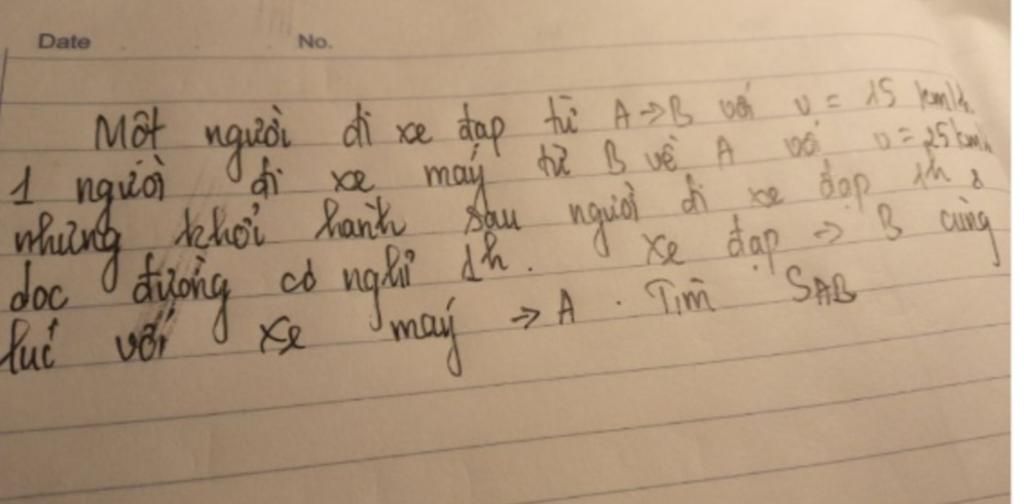 Date No.
Một người đi xe đạp từ A→B với v = 15 km/h.
1 người đi xe máy từ B về A với v = 25 km/h
nhưng khởi hành sau người đi xe đạp 1h &
dọc đường có nghỉ 1h. Xe đạp → B cùng
lúc với xe máy → A. Tìm SAB